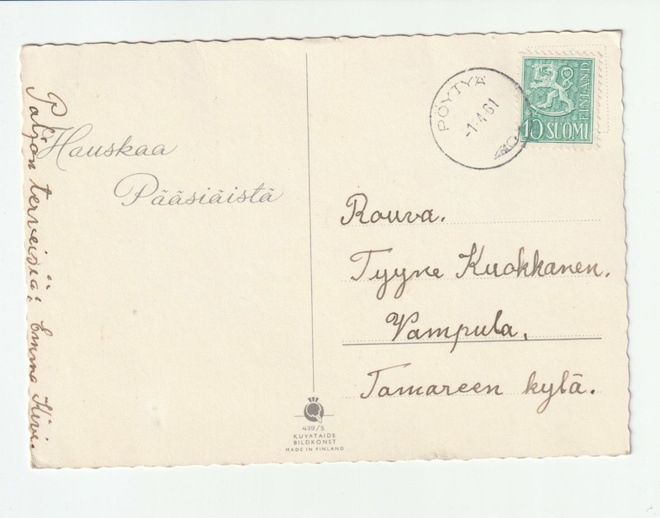 Hauskaa
Pääsiäistä
Paljon terveisiä; Emma Kivi.
PÖYTYÄ
-1.4.61
FINLAND
10 SUOMI
Rouva.
Tyyne Kuokkanen.
Vampula.
Tamareen kylä.
439/5
KUVATAIDE
BILDKONST
MADE IN FINLAND